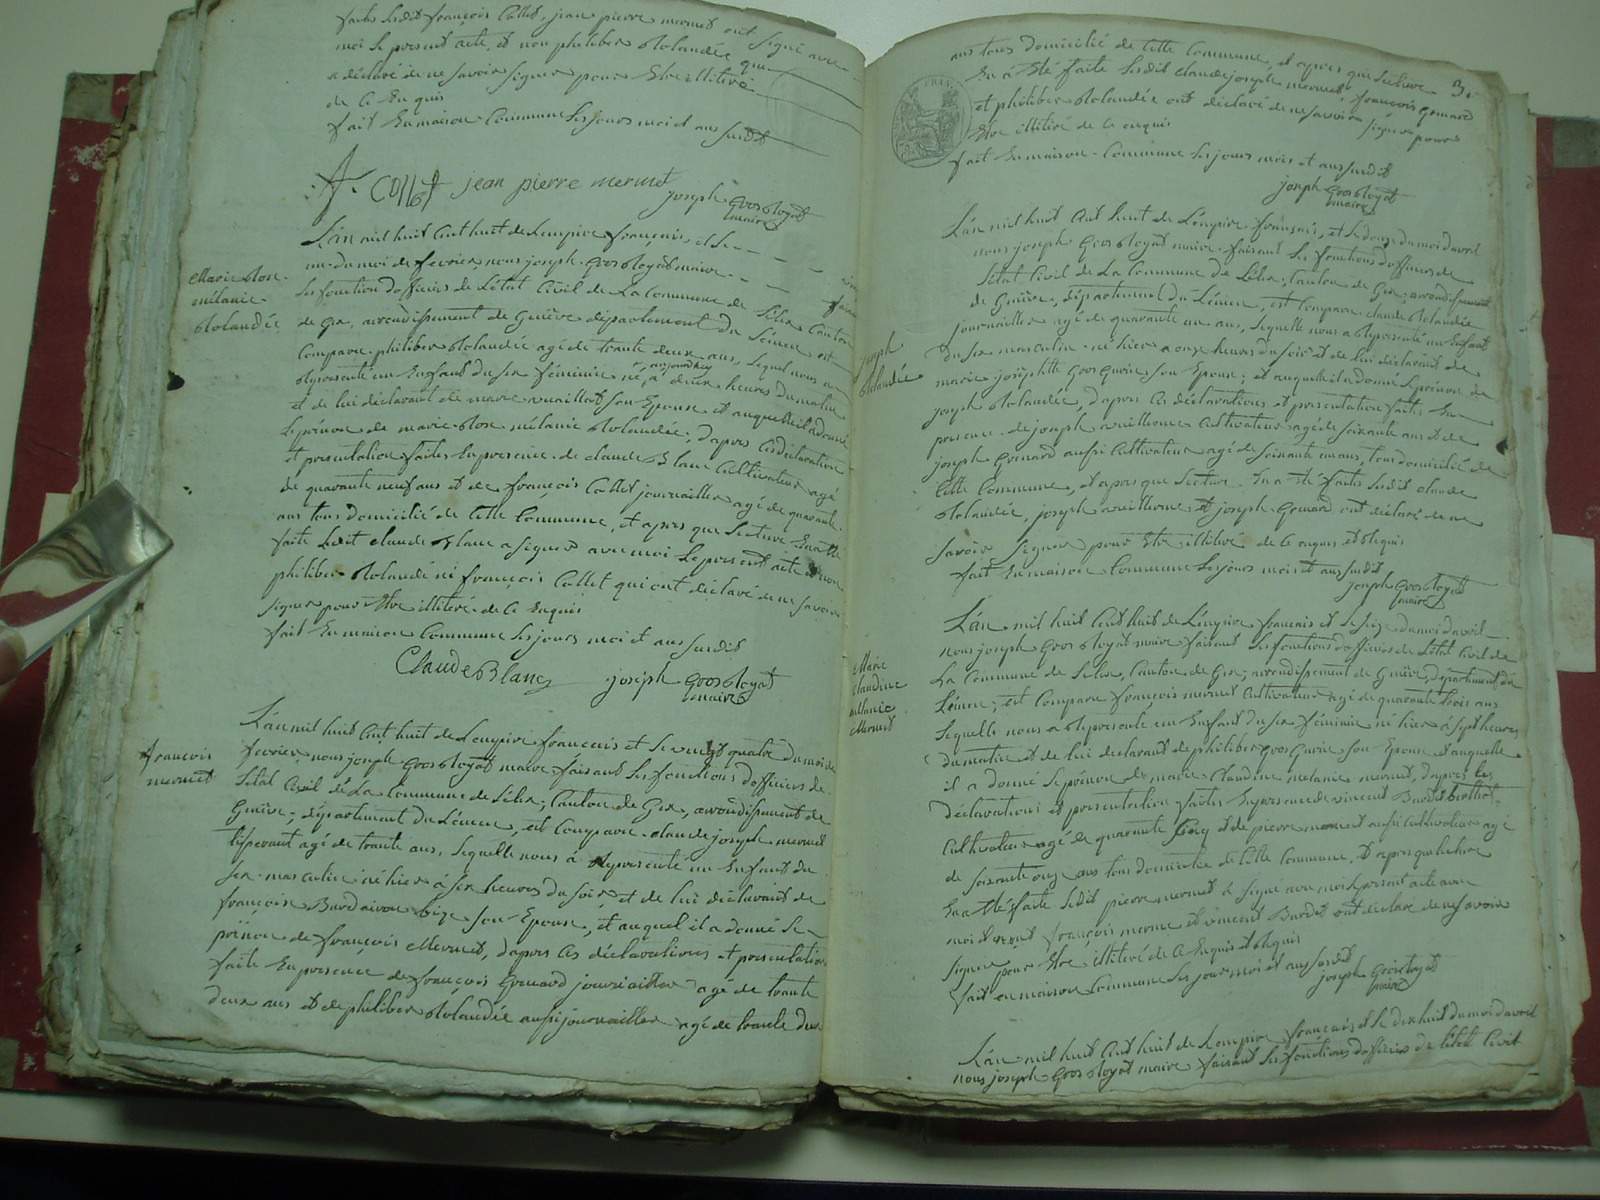 faite ledit françois Collet, jean pierre mermet ont signé avec
moi le present acte, et non philiber Rolandée qui
a déclaré de ne savoir signer pour Etre illitéré
de ce Enquis
fait En maison Commune les jours moi et ans susdit
f. collet jean pierre mermet
joseph Gros Royat
maire
L'an mil huit Cent huit de L'empire français et le
du moi de fevrier, nous joseph Gros Royat maire
Marie Rose
mélanie
Rolandée
les fonction d'officiers de L'état Civil de La Commune de Lélex Canton
de Gex, arrondissement de Genève département du Léman est
Comparu philiber Rolandée agé de trante deux ans, lequel nous a
Représenté un Enfant du sex féminin né aujourdhuy à deux heures du matin
et de lui déclarant et de marie vuaillat son Epouse et auquel il a donné
le prénon de marie Rose mélanie Rolandée, d'apres Ces déclaration
et presentation faites En presence de claude Blanc Cultivateur agé
de quarante neuf ans et de françois Collet journaillier agé de quarante
ans tous domicilié de Cette Commune, et apres que Lecture En a Eté
faite ledit claude Blanc a signer avec moi Le present acte et non
philiber Rolandé ni françois Collet qui ont déclaré de ne savoir
signer pour Etre illitéré de Ce Enquis
fait En maison Commune les jours moi et ans susdit
Claude Blanc joseph Gros Royat
maire
françois
mermet
L'an mil huit Cent huit de Lempire francais et le vengt quatre du moi de
fevrier, nous joseph Gros Royat maire faisant les fonctions d'officiers de
Létat Civil de La Commune de Lélex, Canton de Gex, arrondissement de
Genève, département du Léman, est Comparu claude joseph mermet
tisserant agé de trante ans, lequelle nous à Representé un Enfant du
sex masculin né hier à six heures du soir et de lui déclarant de
françoise Burdairon bize son Epouse, et auquel il a donné le
prénon de françois Mermet, dapres Ces déclarations et presentation
faite En presence de françois Grenard journaillier agé de trante
deux ans et de philiber Rolandée aussi journaillier agé de trante deux
3.
ans tous domicilié de Cette Commune, et apres que Lecture
En a Eté faite lesdit claude joseph mermet, françois Grenard
et philiber Rolandée ont déclaré de ne savoir signer pour
Etre illitéré de ce enquis
fait En maison Commune les jours mois et ans susdit
joseph Gros Royat
maire
L'an mil huit Cent huit de L'empire français, et le douze du moi davril
nous joseph Gros Royat maire faisant les fonctions d'officiers de
Létat Civil de La Commune de Lélex, Canton de Gex, arrondissement
de Genève, département du Léman, est Comparu claude Rolandée
journaillier agé de quarante un ans, lequelle nous a Representé un Enfant
joseph
Rolandée
du sex masculin né hier a onze heures du soir et de lui déclarant de
marie josephtte Gros Gurin son Epouse, et auquelle il a donné le prénon de
joseph Rolandée, d'apres Ces déclarations et presentation faites En
presence de joseph avuillonne Cultivateur agé de soixante ans et de
joseph Grenard aussi Cultivateur agé de soixante un ans, tous domicilié de
Cette Commune, et apres que Lecture En a Eté faites lesdit claude
Rolandée, joseph avuillonne et joseph Grenard ont déclaré de ne
savoir signer pour Etre illitéré de Ce enquis et Requis
fait En maison Commune les jours mois et ans susdit
joseph Gros Royat
maire
L'an mil huit Cent huit de L'empire francais et le seize du moi davril
nous joseph Gros Royat maire faisant les fonctions d'officiers de Létat Civil de
Marie
Claudine
mélanie
Mermet
La Commune de Lélex, Canton de Gex, arrondissement de Genève, département du
Léman, est Comparu françois mermet Cultivateur agé de quarante trois ans
lequelle nous a Representé un Enfant du sex féminin né hier à sept heures
du matin et de lui déclarant de philiber Gros Gurin son Epouse et auquelle
il a donné le prénon de marie Claudine melanie mermet, dapres les
déclarations et presentation faites En presence de vincent Burdet
Cultivateur agé de quarante cinq et de pierre mermet aussi cultivateur agé
de soixante onze ans tous domicilié de Cette Commune, et apres que lecture
En a Eté faite ledit pierre mermet a signé avec moi le present acte
moi et nont françois mermet et vincent Burdet ont déclaré de ne savoir
signer pour Etre illitéré de Ce Enquis et Requis
fait en maison Commune les jours moi et ans susdit
joseph Gros Royat
maire
L'an mil huit Cent huit de Lempire français et le dix huit du moi davril
nous joseph Gros Royat maire faisant les fonctions d'officiers de Létat Civil